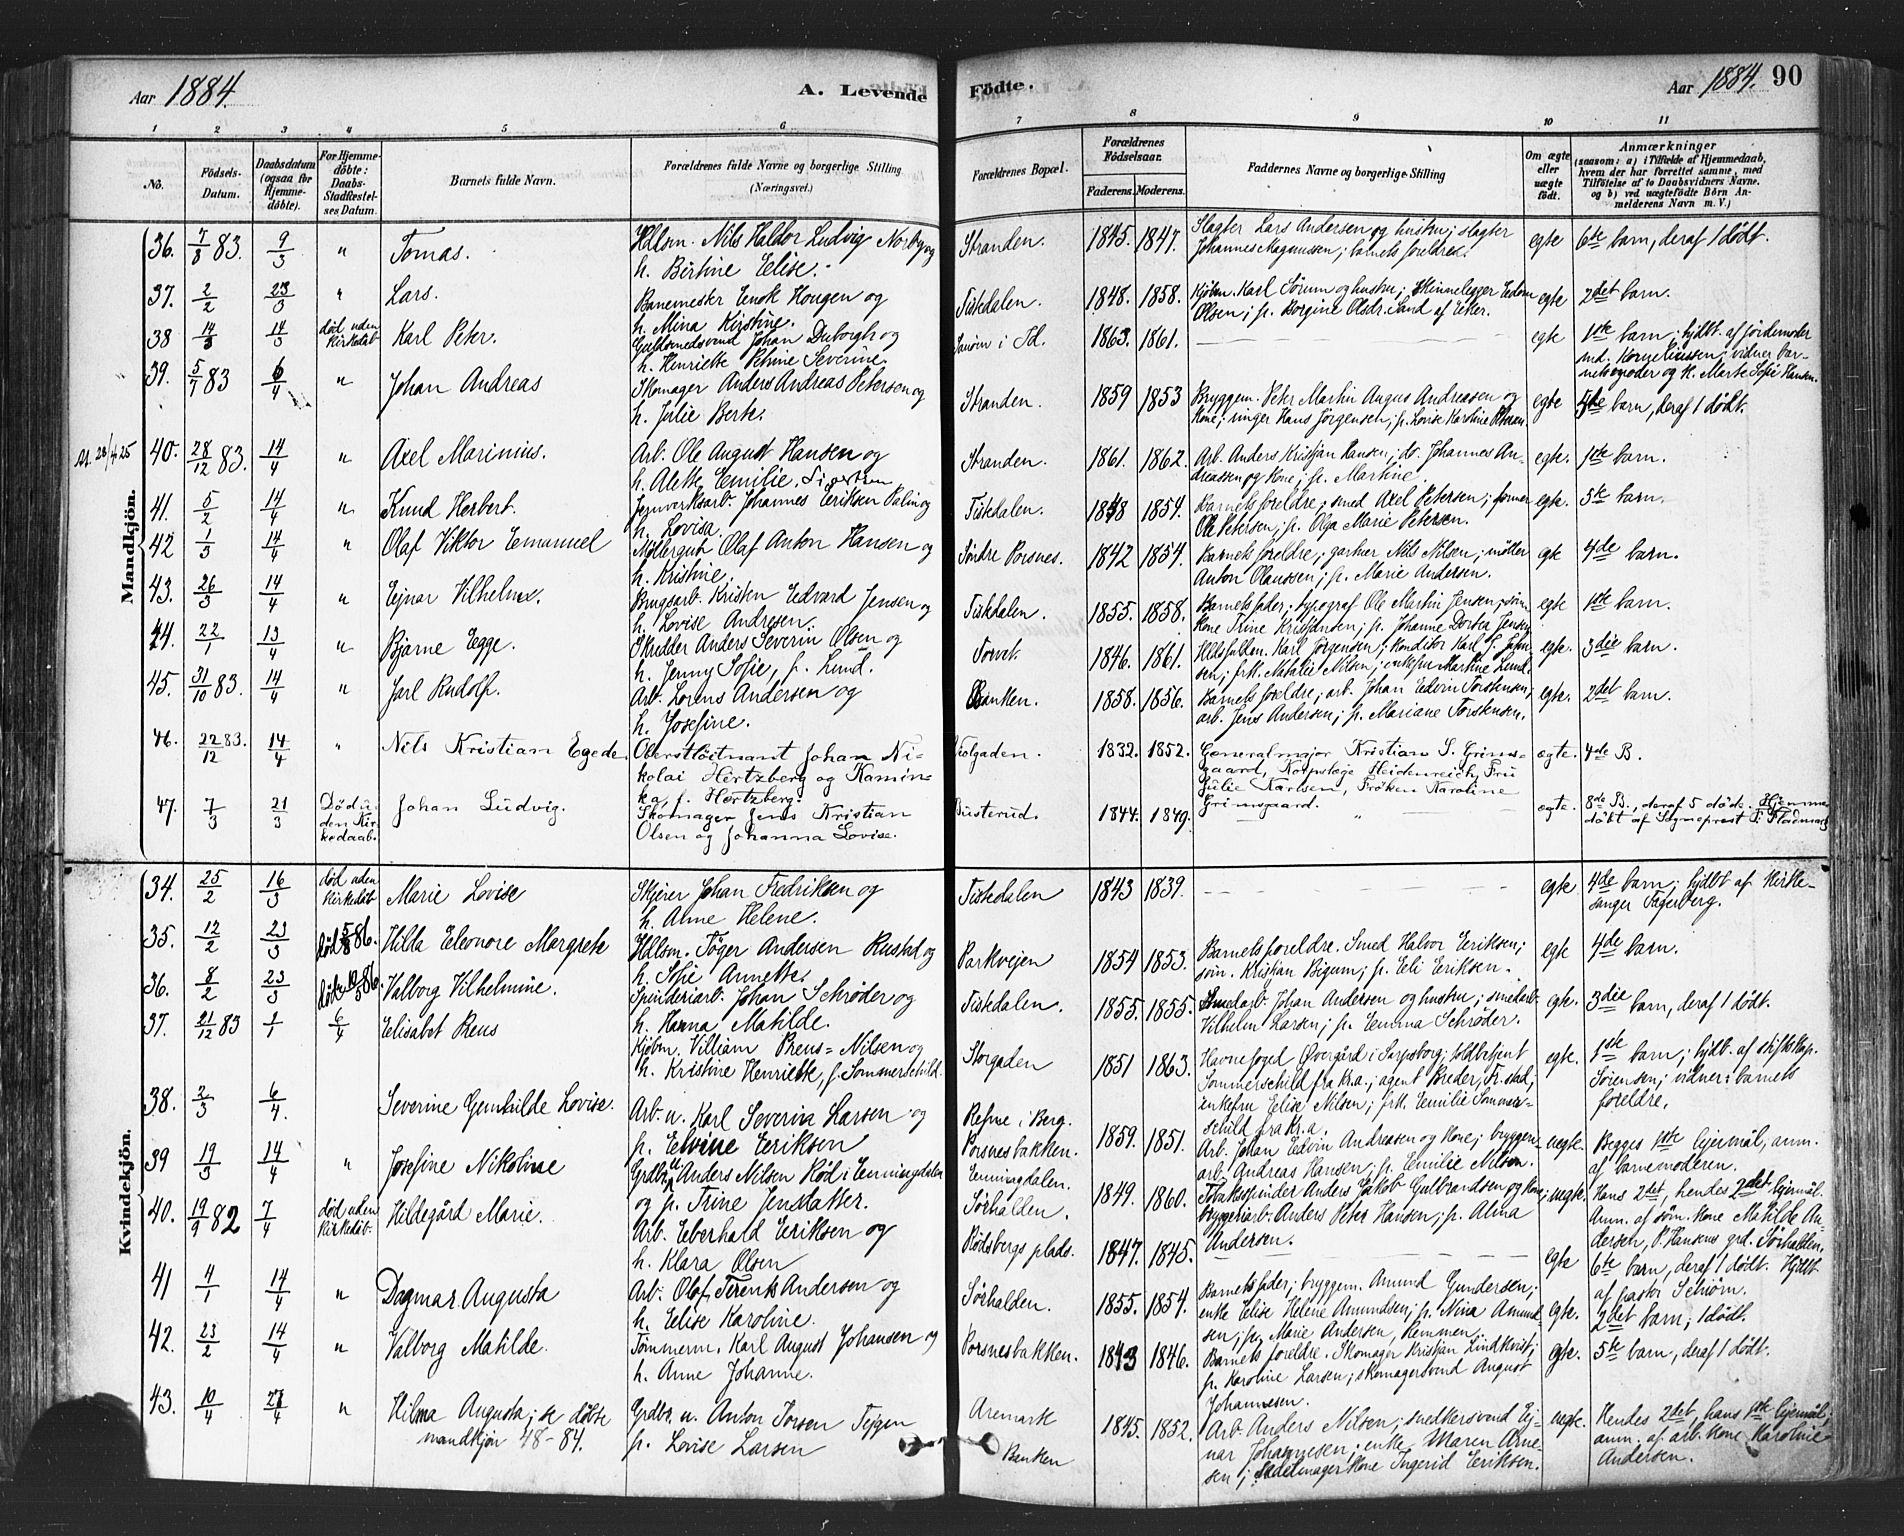 Aar 1884.
A. Levende
Födte.
Aar 1884. 90
1 2 3 4 5 6 7 8 9 10 11
No.
Födsels-Datum.
Daabsdatum (ogsaa for Hjemmedöbte).
For Hjemmedöbte: Daabs-Stadfæstelses Datum.
Barnets fulde Navn.
Forældrenes fulde Navne og borgerlige Stilling (Næringsvei.)
Forældrenes Bopæl.
Forældrenes Födselsaar.
Faderens. Moderens.
Faddernes Navne og borgerlige Stilling
Om ægte eller uægte födt.
Anmærkninger
(saasom: a) i Tilfælde af Hjemmedaab, hvem der har forrettet samme, med Tilföielse af to Daabsvidners Navne, og b) ved uægtefödte Börn Anmelderens Navn m. V.)
Mandkjön.
36. 7/8 83. 9/3 " Tomas. Hdlsm. Nils Haldor Ludvig Norby og
h. Birtine Elise. Stranden. 1845. 1847. Slagter Lars Andersen og hustru; slagter
Johannes Magnussen; barnets foreldre. egte 6te barn, deraf 1 dödt.
37. 2/2 23/3 " Lars. Banemester Enok Hougen og
h. Mina Kirstine. Tistedalen. 1848. 1858. Kjöbm. Karl Sörum og hustru;
Olsen; p. Borgine Olsdr. Sand af Eker. egte 2det barn.
38 14/3 14/3 död uden kirkedåb Karl Peter. Guldsmedsvend Johan Duborgh og
h. Henriette Petrine Severine. i Id. 1863. 1861. egte 1ste barn; hjdbt. af jordemoder
md. Korneliussen; vidner barnets moder og k. Marte Sofie Hansen.
39. 5/7 83 6/4 " Johan Andreas Skomager Anders Andreas Petersen og
h. Julie Berte. Stranden. 1859 1853 Bryggem. Peter Martin Angus Andreasen og
kone; Hans Jörgensen; p. Lovise Karoline egte barn, deraf 1 dödt.
40. 28/12 83. 14/4 " Axel Marinius. Arb. Ole August Hansen og
h. Alette Emilie. Stranden. 1861. 1862. Arb. Anders Kristian Hansen; do. Johannes Andreassen og kone; p. Martine egte. 1ste barn.
41. 5/2 14/4 " Knud Herbert. Jernverksarb. Johannes Eriksen Palin og
h. Lovisa. Tistedalen. 1848 1854. Barnets foreldre; smed Axel Petersen; former
Ole Petersen; p. Olga Marie Petersen. egte. 5te barn.
42 1/3 14/4 " Olaf Viktor Emanuel Möllergut Olaf Anton Hansen og
h. Kristine. Söndre Porsnes. 1842 1854. Barnets foreldre; gartner Nils Nilsen; möller
Anton Olaussen; p. Marie Andersen. egte 4de barn.
43. 26/3 14/4 " Ejnar Vilhelm. Brugsarb. Kristen Edvard Jensen og
h. Lovise Andresen. Tistedalen. 1855. 1858. Barnets fader; typograf Ole Martin Jensen; söm.
kone Trine Kristjansen; p. Johanne Dortea Jensen egte 1ste barn.
44. 22/1 13/4 " Bjarne Egge. Skredder Anders Severin Olsen og
h. Jenny Sofie, f. Lund. Torvet. 1846. 1861. Karl Jörgensen; konditor Karl
frk. Natalie Nilsen; enkefru Martine Lund egte. 3die barn.
45. 31/10 83. 14/4 " Jarl Rudolf. Arb. Lorens Andersen og
h. Josefine. Banken. 1858. 1856. Barnets foreldre; arb. Johan Edvin Torstensen;
arb. Jens Andersen; p. Mariane Torstensen. egte. 2det barn.
46. 22/12 83. 14/4 " Nils Kristian Egede. Oberstlöitnant Johan Nikolai Hertzberg og Kaminka, f. Hertzberg. Volgaden. 1832. 1852. Generalmajor Kristian S. Grimsgaard, Korpslæge Heidenreich, Fru
Julie Karlsen, Fröken Karoline
Grimsgaard. ægte. 4de B.
47. 7/3 21/3 Död uden Kirkedaab. Johan Ludvig. Skomager Jens Kristian
Olsen og Johanna Lovise. Busterud. 1844. 1849. " ægte. 8de B., deraf 5 döde. Hjemmedöbt af Sogneprest F. Fladmark
Kvindekjön.
34. 25/2 16/3 död uden kirkedåb Marie Lovise Skjerer Johan Fredriksen og
h. Anne Helene. Tistedalen 1843 1839. egte. 4de barn; hjdbt af kirkesanger Fagerberg.
35. 12/2 23/3 död 5/8 86. Hilda Eleonore Margrete Hdlsm. Töger Andersen Rustad og
h. Sofie Annette. Parkvejen 1854 1853. Barnets foreldre. Smed Halvor Eriksen;
söm. Kristjan Bigum; p. Eli Eriksen. egte 4de barn.
36. 8/2 23/3 död 10/5 86. Valborg Vilhelmine. Spinderiarb. Johan Schröder og
h. Hanna Matilde. Tistedalen. 1855. 1855. Smedarb. Johan Andersen og hustru; smedarb.
Vilhelm Larsen; p. Emma Schröder. egte. 3die barn, deraf 1 dödt.
37. 21/12 83 2/1 6/4 Elisabet Preus Kjöbm. Villiam Preus-Nilsen og
h. Kristine Henriette, f. Sommerschild. Storgaden 1851 1863. Havnefoged Övergård i Sarpsborg; toldbetjent
Sommerschild fra Kr.a.; agent Breder, Fr.stad;
enkefru Elise Nilsen; frk. Emilie Sommerschild fra Kr.a. egte. 1ste barn; hjdbt. af stiftskap.
Sörensen; vidner: barnets
foreldre.
38. 2/3 6/4. Severine Gunhilde Lovise. Arb. u. Karl Severin Larsen og
p. Elvine Eriksen Refne i Berg.
Porsnesbakken. 1859. 1851. Arb. Johan Edvin Andreasen og kone; bryggeriarb. Andreas Hansen; p. Emilie Nilsen. uegte. Begges 1ste lejermål, anm.
af barnemoderen.
39 19/3 14/4 " Josefine Nikoline Grdbr. u. Anders Nilsen Röd i Enningdalen
og p. Trine Jensdatter. Enningdalen.
Sörhalden. 1849. 1860. Tobaksspinder Anders Jakob Gulbrandsen og kone;
bryggeriarb. Anders Peter Hansen; p. Alma
Andersen. uegte. Hans 2det, hendes 2det lejermål.
Anm. af söm. kone Matilde Andersen, P. Hansens grd. Sörhalden.
40. 19/9 82 7/4 död uden kirkedåb. Hildegård Marie. Arb. Eberhald Eriksen og
h. Klara Olsen Rödsbergs plads. 1847. 1845. egte 6te barn, deraf 1 dödt. Hjdbt
af pastor Schiörn.
41 4/1 14/4 " Dagmar Augusta Arb. Olaf Terents Andersen og
h. Elise Karoline. Sörhalden. 1855. 1854. Barnets fader; bryggem. Amund Gundersen;
enke Elise Helene Amundsen; p. Nina Amundsen; p. Marie Andersen, Remmen. egte. 2det barn; 1 dödt.
42. 23/2 14/4 " Valborg Matilde. Tömmerm. Karl August Johansen og
h. Anne Johanne. Porsnesbakken. 1843 1846. Barnets foreldre. Skomager Kristjan Lindkvist;
p. Karoline Larsen; skomagersvend August
Johannesen. egte. 5te barn, deraf 1 dödt.
43. 10/4 27/4 " Hilma Augusta; se döbte
mandkjön 48-84. Grdbr. u. Anton Torsen Tejgen
p. Lovise Larsen Aremark
Banken 1845. 1852. Arb. Anders Nilsen; snedkersvend Ejnar Johannesen; enke Maren Arnesen; sadelmagerkone Ingerid Eriksen. uegte. Hendes 2det, hans 1ste lejermål;
anm. af arb. kone Karoline
Andersen.